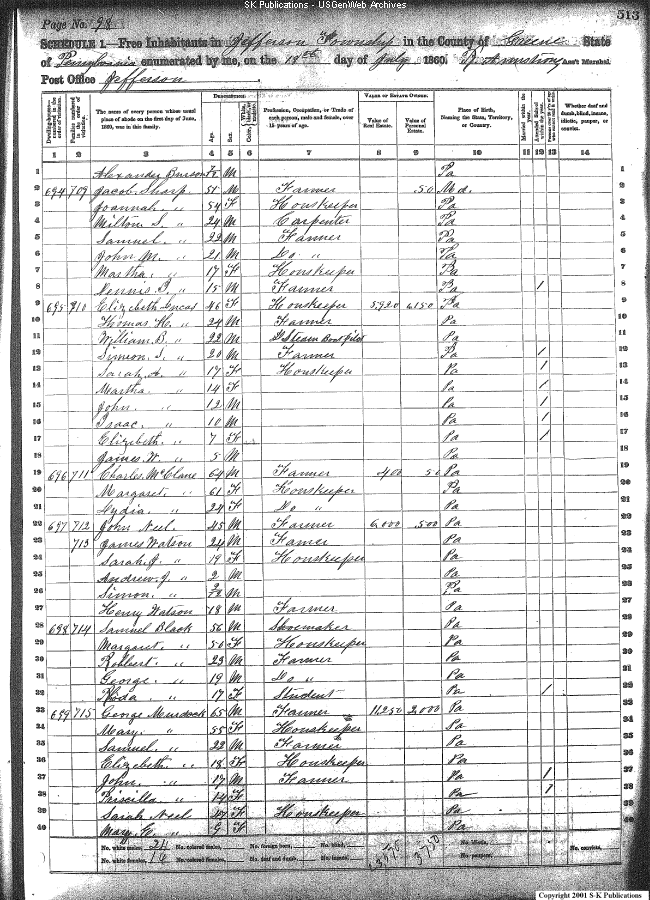 S-K Publications - USGenWeb Archives
Page No. 98
513
SCHEDULE 1.—Free Inhabitants in Jefferson Township in the County of Greene State
of Pennsylvania enumerated by me, on the 18th day of July 1860. Armstrong Ass't Marshal.
Post Office Jefferson
Dwelling-houses numbered in the order of visitation. Families numbered in the order of visitation. The name of every person whose usual place of abode on the first day of June, 1860, was in this family. Description. Age. Sex. Color, Profession, Occupation, or Trade of each person, male and female, over 15 years of age. Value of Estate Owned. Value of Real Estate. Value of Personal Estate. Place of Birth, Naming the State, Territory, or Country. Married within the year. Attended School within the year. Whether deaf and dumb, blind, insane, idiotic, pauper, or convict.
1 2 3 4 5 6 7 8 9 10 11 12 13 14
1 Alexander M Pa 1
2 694 709 Jacob Sharp 51 M Farmer 50 Md. 2
3 Joannah " 54 F Houskeeper Pa 3
4 Milton S. " 24 M Carpenter Pa 4
5 Samuel " 22 M Farmer Pa 5
6 John M. " 21 M Do " Pa 6
7 Martha " 17 F Houskeeper Pa 7
8 Dennis " 15 M Farmer Pa / 8
9 695 710 Elizabeth Lucas 46 F Houskeeper 5,920 6150 Pa 9
10 Thomas H. " 24 M Farmer Pa 10
11 William B. " 22 M Steam Boat Pilot Pa 11
12 Simmon S. " 20 M Farmer Pa / 12
13 Sarah A. " 17 F Houskeeper Pa / 13
14 Martha " 14 F Pa / 14
15 John " 12 M Pa / 15
16 Isaac " 10 M Pa / 16
17 Elizabeth " 7 F Pa / 17
18 James W. " 5 M Pa 18
19 696 711 Charles McClane 64 M Farmer 400 50 Pa 19
20 Margaret " 61 F Houskeeper Pa 20
21 Lydia " 24 F Do " Pa 21
22 697 712 John Neel 45 M Farmer 6,000 500 Pa 22
23 713 James Watson 24 M Farmer Pa 23
24 Sarah J. " 19 F Houskeeper Pa 24
25 Andrew J. " 2 M Pa 25
26 Simon " M Pa 26
27 Henry Watson 18 M Farmer Pa 27
28 698 714 Samuel Black 56 M Shoemaker Pa 28
29 Margaret " 50 F Houskeeper Pa 29
30 Robbert " 23 M Farmer Pa 30
31 George " 19 M Do " Pa 31
32 Rhoda " 17 F Student Pa 32
33 699 715 George Murdock 65 M Farmer 11,250 2,000 Pa 33
34 Mary " 55 F Houskeeper Pa 34
35 Samuel " 22 M Farmer Pa 35
36 Elizabeth " 18 F Houskeeper Pa 36
37 John " 17 M Farmer Pa 1 37
38 Priscilla " 14 F Pa 1 38
39 Sarah Neel F Houskeeper Pa 39
40 Mary " 9 F Pa 40
No. white males, 24 No. colored males, No. foreign born, No. blind, No. idiotic, No. convicts,
No. white females, 16 No. colored females, No. deaf and dumb, No. insane, No. paupers,
Copyright 2001 S-K Publications